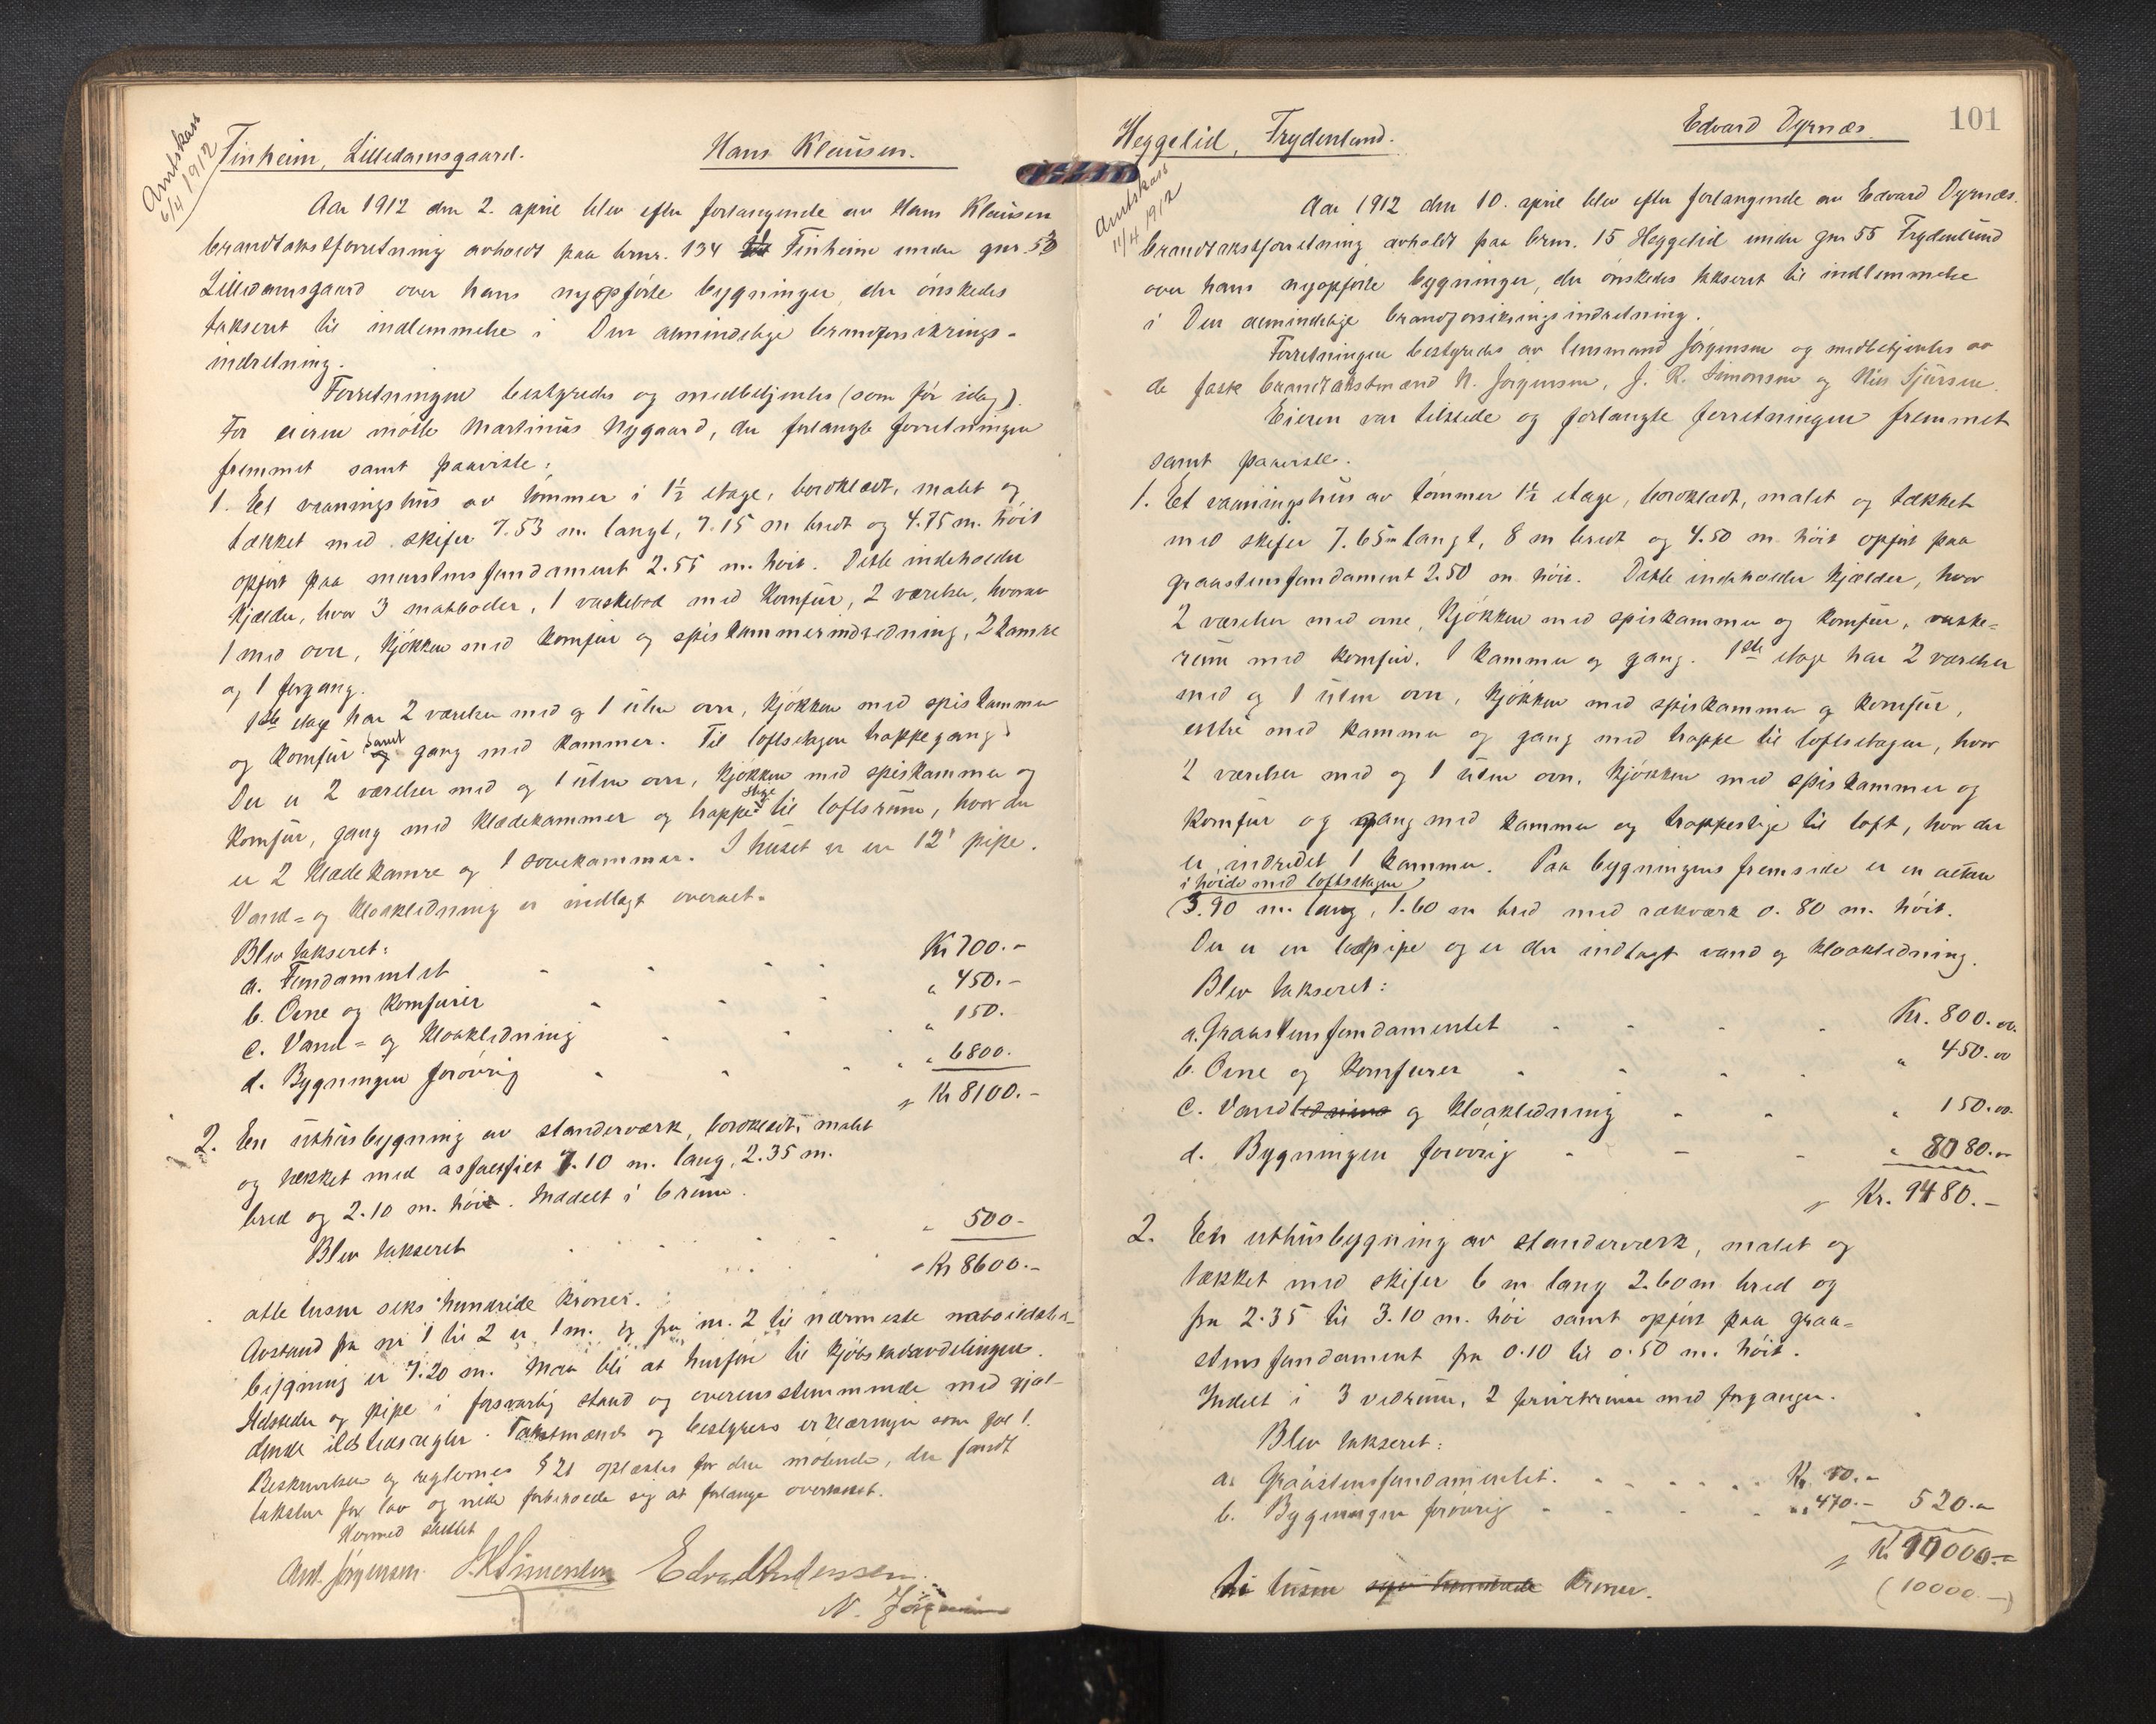 Amtskass
6/4 1912
Finheim, Lilledamsgaard. Hans Klausen.
Aar 1912 den 2. april blev efter forlangende av Hans Klausen
brandtakstforretning avholdt paa brnr. 134 Finheim under gnr. 53
Lilledamsgaard over hans nyopførte bygninger, der ønskedes
takseret til indlemmelse i Den almindelige brandforsikrings-
indretning.
Forretningen bestyredes og medbetjentes (som før idag).
For eieren møtte Martinus Nygaard, der forlangte forretningen
fremmet samt paaviste:
1. Et vaaningshus av tømmer i 1½ etage, bordklædt, malet og
tækket med skifer 7.53 m. langt, 7.15 m bredt og 4.75 m. høit
opført paa murstensfundament 2.55 m. høit. Dette indeholder
kjelder, hvor 3 matboder, 1 vaskebod med komfur, 2 værelser, hvorav
1 med ovn, kjøkken med komfur og spiskammerindredning, 2 kamre
og 1 forgang.
1ste etage har 2 værelser med og 1 uten ovn, kjøkken med spiskammer
og komfur samt gang med kammer. Til loftsetagen trappegang.
Der er 2 værelser med og 1 uten ovn, kjøkken med spiskammer og
komfur, gang med klædekammer og trappestige til loftsrum, hvor der
er 2 klædekamre og 1 sovekammer. I huset er en 12" pipe.
Vand- og kloakledning er indlagt overalt.
Blev takseret:
a. Fundamentet Kr 700.-
b. Ovne og komfurer " 450.-
c. Vand- og kloakledning " 150.
d. Bygningen forøvrig " 6800.
Kr 8100.-
2. En uthusbygning av standerværk, bordklædt, malet
og tækket med asfaltfilt 7.10 m. lang, 2.35 m.
bred og 2.10 m. høi. Inddelt i 6 rum.
Blev takseret " 500-
Kr 8600.-
otte tusen seks hundrede kroner.
Avstand fra nr 1 til 2 er 1 m. og fra nr. 2 til nærmeste nabo
bygning er 7.20 m. Maa bli at henføre til kjøbstadavdelingen.
Ildsteder og pipe i forsvarlig stand og overensstemmende med gjæl-
dende ildstedsregler. Takstmænds og bestyrers erklæringer som fol 1.
Beskrivelsen og reglernes § 21 oplæstes for den møtende, der fandt
taksten for lav og vilde forbeholde sig at forlange overtakst.
Hermed sluttet
Ant. Jørgensen. J.K. Simonsen Edvard Andersen.
N. Jørgensen
101
Heggelid, Frydenlund. Edvard Dyrnæs.
Amtskass
11/4 1912
Aar 1912 den 10. april blev efter forlangende av Edvard Dyrnæs.
brandtakstforretning avholdt paa brnr. 15 Heggelid under gnr 55 Frydenlund
over hans nyopførte bygninger, der ønskedes takseret til indlemmelse
i Den almindelige brandforsikringsindretning.
Forretningen bestyredes av lensmand Jørgensen og medbetjentes av
de faste brandtakstmænd N. Jørgensen, J. K. Simonsen og Nils Sjursen.
Eieren var tilstede og forlangte forretningen fremmet
samt paaviste.
1. Et vaaningshus av tømmer 1½ etage, bordklædt, malet og tækket
med skifer 7.65 m langt, 8 m bredt og 4.50 m høit opført paa
graastensfundament 2.50 m høit. Dette indeholder kjælder, hvor
2 værelser med ovne, kjøkken med spiskammer og komfur, vaske-
rum med komfur, 1 kammer og gang. 1ste etage har 2 værelser
med og 1 uten ovn, kjøkken med spiskammer og komfur,
entre med kammer og gang med trappe til loftsetagen, hvor
2 værelser med og 1 uten ovn, kjøkken med spiskammer og
komfur og gang med kammer og trappestige til loft, hvor der
er indredet 1 kammer. Paa bygningens fremside er en altan
i høide med loftsetagen
3.90 m. lang, 1.60 m bred med rækværk 0.80 m. høit.
Der er en pipe og er der indlagt vand og kloakledning.
Blev takseret:
a. Graastensfundamentet Kr. 800.00
b. Ovne og komfurer " 450.00
c. Vandledning og kloakledning " 150.00
d. Bygningen forøvrig " 8080.00
Kr. 9480.-
2. En uthusbygning av standerværk, malet og
tækket med skifer 6 m lang 2.60 m bred og
fra 2.35 til 3.10 m. høi samt opført paa graa-
stensfundament fra 0.10 til 0.50 m. høit.
Indelt i 3 vedrum, 2 privetrum med forganger.
Blev takseret:
a. Graastensfundamentet. Kr. 50.-
b. Bygningen forøvrig " 470.- 520.-
Kr 10000.-
(10000.-)
ti tusen kroner.